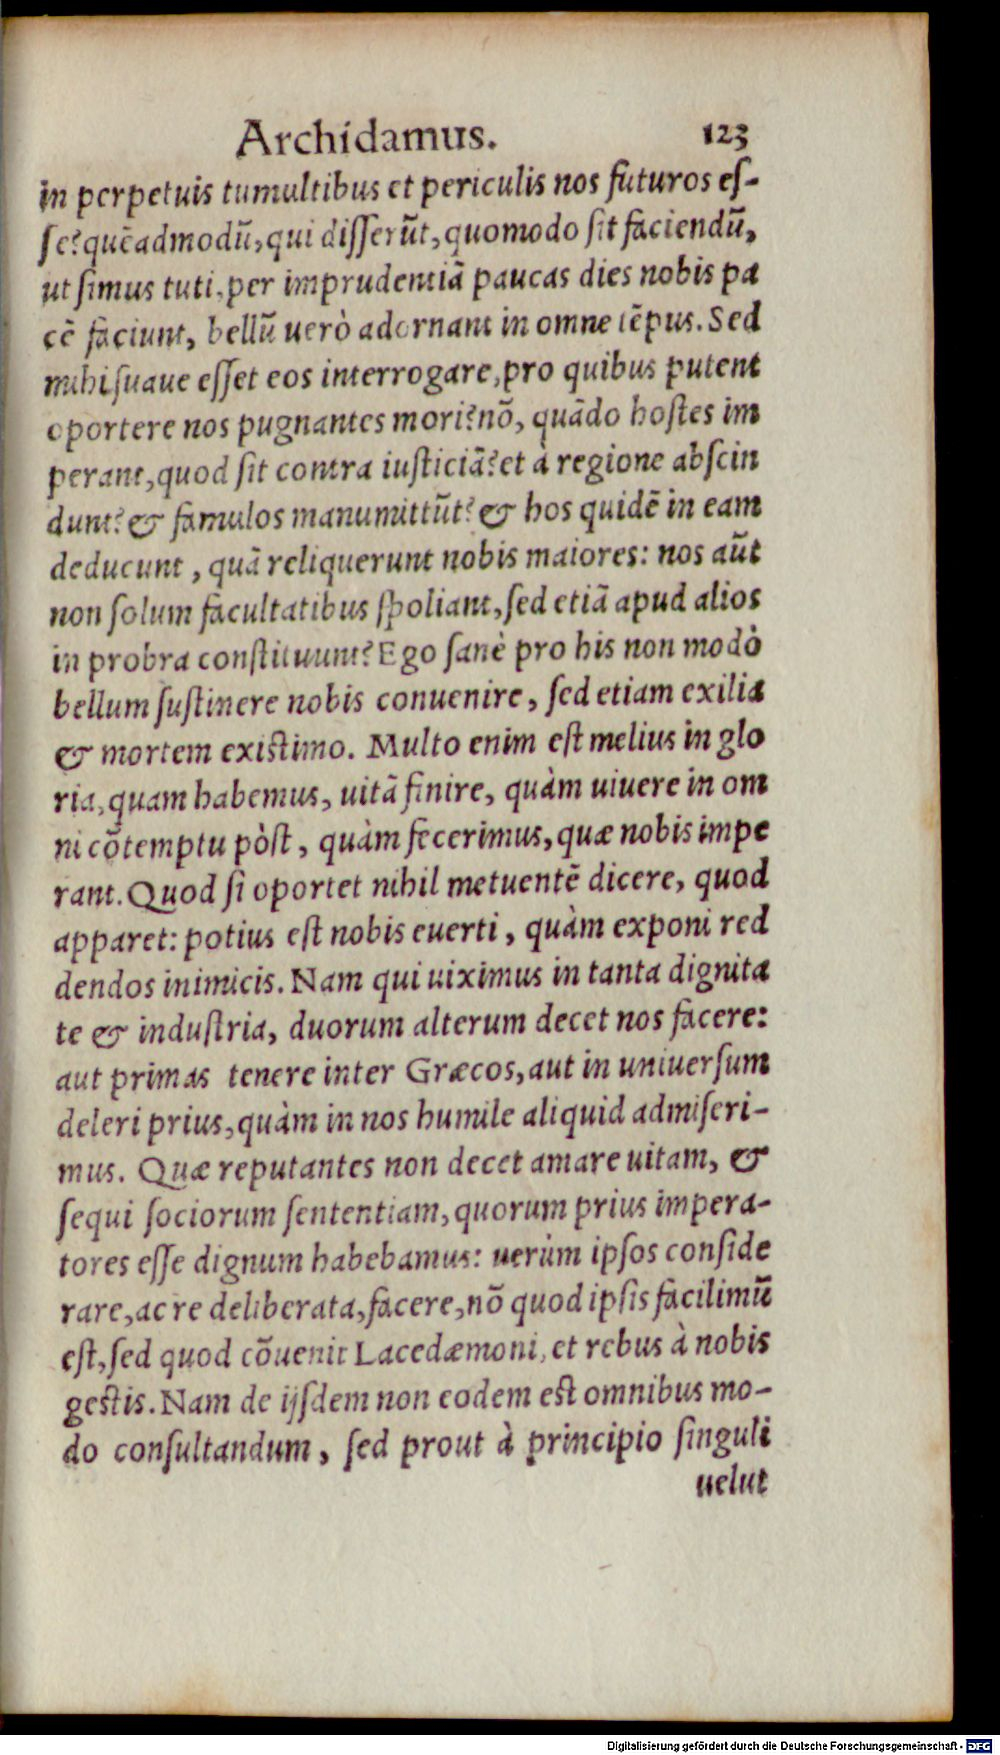 Archidamus. 123
in perpetuis tumultibus et periculis nos futuros eſ-
ſe? quẽadmodũ, qui diſſerũt, quomodo ſit faciendũ,
ut ſimus tuti, per imprudentiã paucas dies nobis pa
cẽ faciunt, bellũ uerò adornant in omne tẽpus. Sed
mihi ſuaue eſſet eos interrogare, pro quibus putent
oportere nos pugnantes mori? nõ, quãdo hoſtes im
perant, quod ſit contra iuſticiã? et à regione abſcin
dunt? & famulos manumittũt? & hos quidẽ in eam
deducunt, quã reliquerunt nobis maiores: nos aũt
non ſolum facultatibus ſpoliant, ſed etiã apud alios
in probra conſtituunt? Ego ſanè pro his non modò
bellum ſuſtinere nobis conuenire, ſed etiam exilia
& mortem exiſtimo. Multo enim eſt melius in glo
ria, quam habemus, uitã finire, quàm uiuere in om
ni cõtemptu pòſt, quàm fecerimus, quæ nobis impe
rant. Quod ſi oportet nihil metuentẽ dicere, quod
apparet: potius eſt nobis euerti, quàm exponi red
dendos inimicis. Nam qui uiximus in tanta dignita
te & induſtria, duorum alterum decet nos facere:
aut primas tenere inter Græcos, aut in uniuerſum
deleri prius, quàm in nos humile aliquid admiſeri-
mus. Quæ reputantes non decet amare uitam, &
ſequi ſociorum ſententiam, quorum prius impera-
tores eſſe dignum habebamus: uerùm ipſos conſide
rare, ac re deliberata, facere, nõ quod ipſis facilimũ
eſt, ſed quod cõuenit Lacedæmoni, et rebus à nobis
geſtis. Nam de ijſdem non eodem eſt omnibus mo-
do conſultandum, ſed prout à principio ſinguli
uelut
Digitalisierung gefördert durch die Deutsche Forschungsgemeinschaft - DFG